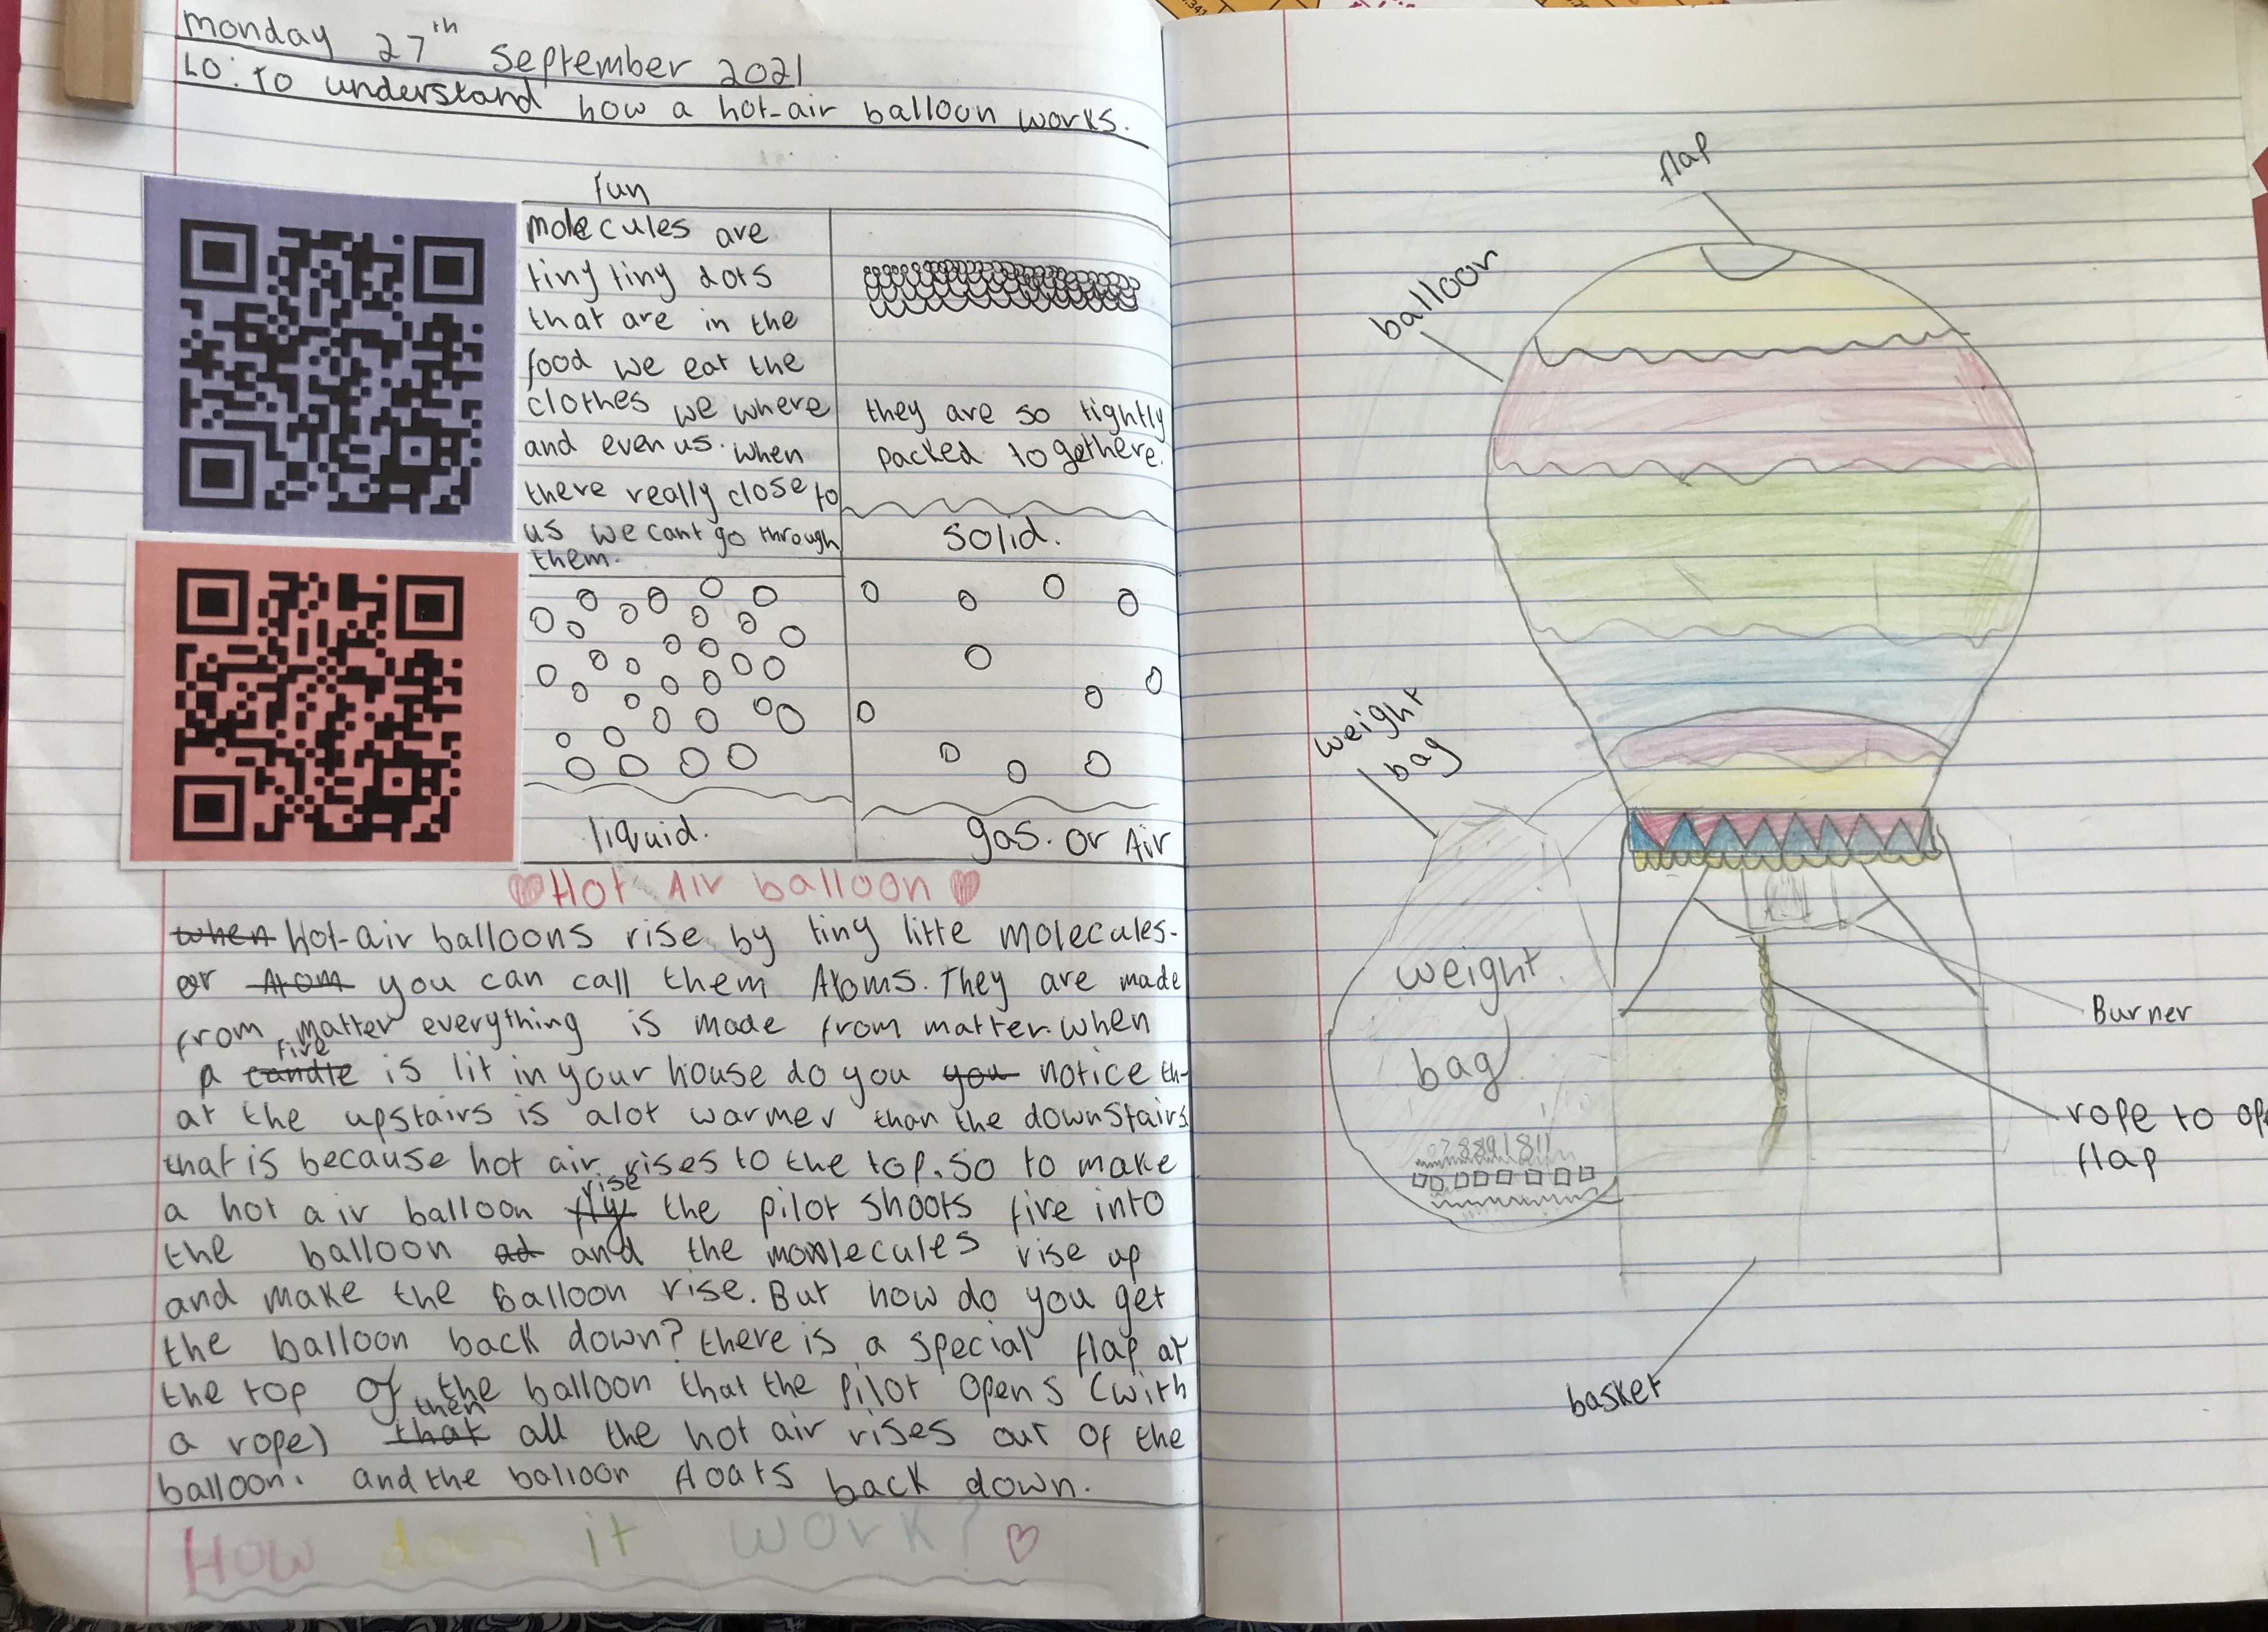 monday 27th September 2021
LO: to understand how a hot-air balloon works.
fun
molecules are
tiny tiny dots
that are in the
food we eat the
clothes we where
and even us. when
there really close to
us we cant go through
them.
they are so tightly
packed to gethere.
solid.
liquid.
gas. or Air
Hot Air balloon
when Hot-air balloons rise by tiny litte molecules-
or Atom you can call them Atoms. They are made
from matter everything is made from matter. when
fire
a candle is lit in your house do you you notice th-
at the upstairs is alot warmer than the downstairs
that is because hot air rises to the top. so to make
rise
a hot air balloon fly the pilot shoots fire into
the balloon ad and the molecules rise up
and make the balloon rise. But how do you get
the balloon back down? there is a special flap at
the top of the balloon that the pilot opens (with
then
a rope) that all the hot air rises out of the
balloon. and the balloon floats back down.
How does it work?
flap
balloon
weight
bag
weight
bag
Burner
rope to op
flap
basket